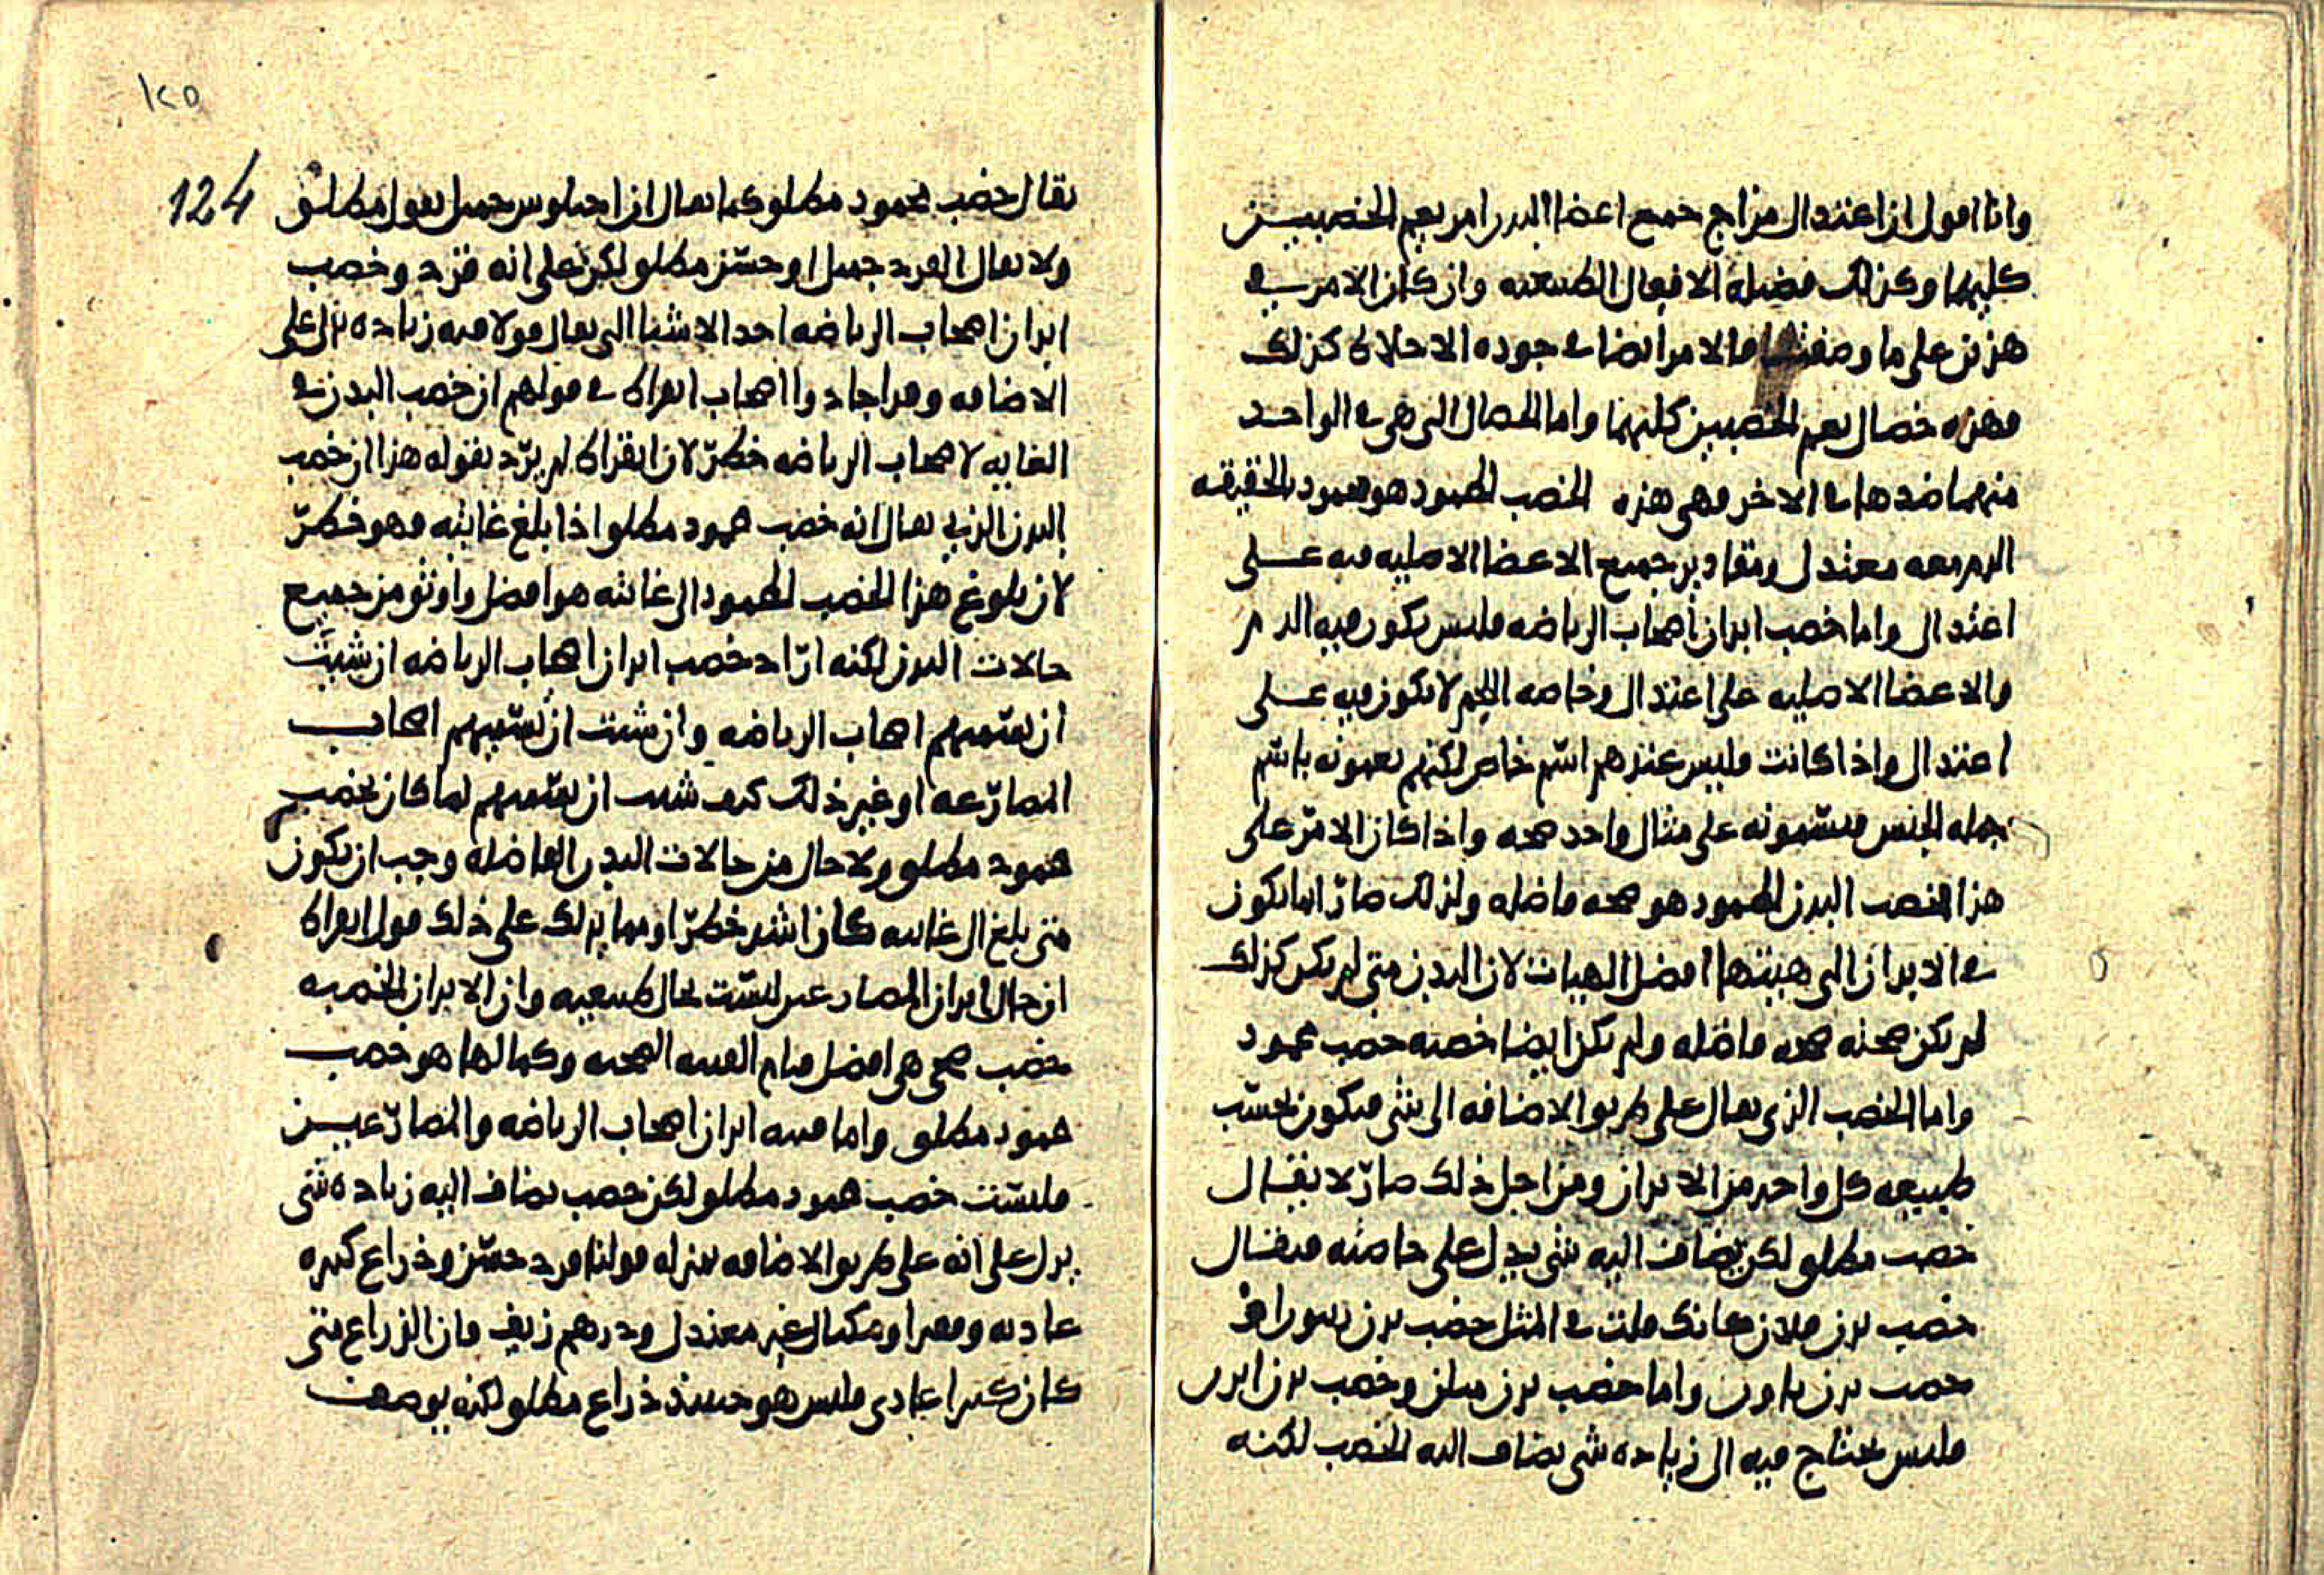 وانا اقول ان اعتدال مزاج جميع اعضا البدن امر يعم الخصبين
كليهما وكذلك فضيلة الافعال الطبيعيه وان كان الامر في
هذين على ما وصفت فالامر ايضا في جوده الاخلاط كذلك
فهذه خصال يعم الخصبين كليهما واما الخصال التي هي في الواحد
منهما ضدها في الاخر فهي هذه الخصب المحمود هو محمود بالحقيقه
الدم معه معتدل ومقادير جميع الاعضا الاصليه فيه على
اعتدال واما خصب ابدان اصحاب الرياضه فليس يكون فيه الدم
والاعضا الاصليه على اعتدال وخاصه اللحم لا يكون فيه على
اعتدال واذا كانت فليس عندهم اسم خاص لكنهم يعمونه باسم
جمله الجنس فيسمونه على مثال واحد صحه واذا كان الامر على
هذا فخصب البدن المحمود هو صحه فاضله ولذلك صار انما يكون
في الابدان التي هيئتها افضل الهيات لان البدن متى لم يكن كذلك
لم يكن صحته صحه فاضله ولم يكن ايضا خصبه خصب محمود
واما الخصب الذي يقال على طريق الاضافه الى شي فيكون بحسب
طبيعه كل واحد من الابدان ومن اجل ذلك صار لا يقال
خصب مطلق لكن يضاف اليه شي يدل على خاصته فيقال
خصب بدن فلان كانك قلت في المثل خصب بدن
خصب بدن واما خصب بدن ميلن وخصب بدن
فليس يحتاج فيه الى زياده شي يضاف اليه الخصب لكنه
١٢٥
124
يقال خصب محمود مطلق كما يقال ان اخيلوس جميل بقول مطلق
ولا يقال القرد جميل او حسن مطلق لكن على انه قرد وخصب
ابدان اصحاب الرياضه احد الاشيا التي يقال قولا فيه زياده تدل على
الاضافه وقد اجادوا اصحاب ابقراط في قولهم ان خصب البدن في
الغايه لاصحاب الرياضه خطر لان ابقراط لم يرد بقوله هذا ان خصب
البدن الذي يقال انه خصب محمود مطلق اذا بلغ غايته فهو خطر
لان بلوغ هذا الخصب المحمود الى غايته هو افضل واوثق من جميع
حالات البدن لكنه اراد خصب ابدان اصحاب الرياضه ان شيت
ان تسميهم اصحاب الرياضه وان شيت ان تسميهم اصحاب
المصارعه او غير ذلك كيف شيت ان تسميهم لما كان بخصب
محمود مطلق ولا حال من حالات البدن الفاضله وجب ان يكون
متى بلغ الى غايته كان اشد خطرا ومما يدلك على ذلك قول ابقراط
ان حال ابدان المصارعين ليست بحال طبيعيه وان الابدان الخصبه
خصب صحي هي افضل فنام القنيه الصحيه وكمالها هو خصب
محمود مطلق واما قنيه ابدان اصحاب الرياضه والمصارعين
فليست خصب محمود مطلق لكن خصب يضاف اليه زياده شي
يدل على انه على طريق الاضافه بمنزله قولنا قرد حسن وذراع كبيره
عاديه ومصر او مكيال غير معتدل ودرهم زيف فان الذراع متى
كان كبيرا عادي فليس هو حينيذ ذراع مطلق لكنه يوصف